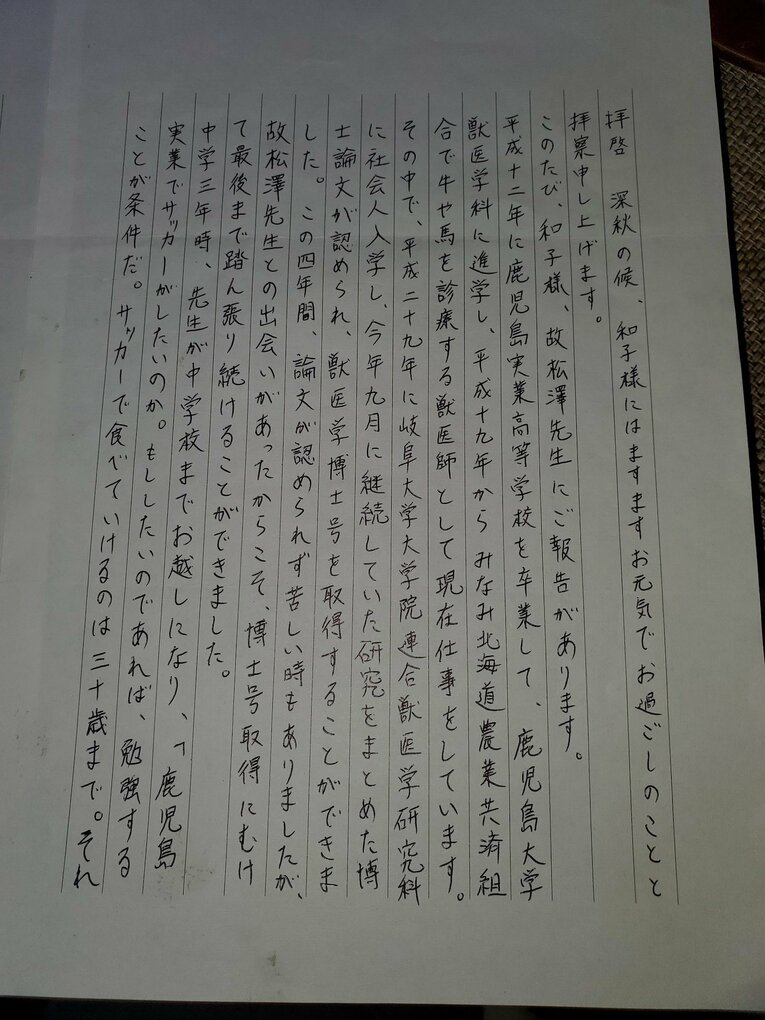 拝啓　深秋の候、和子様にはますますお元気でお過ごしのことと
拝察申し上げます。
このたび、和子様、故松澤先生にご報告があります。
平成十二年に鹿児島実業高等学校を卒業して、鹿児島大学
獣医学科に進学し、平成十九年からみなみ北海道農業共済組
合で牛や馬を診療する獣医師として現在仕事をしています。
その中で、平成二十九年に岐阜大学大学院連合獣医学研究科
に社会人入学し、今年九月に継続していた研究をまとめた博
士論文が認められ、獣医学博士号を取得することができま
した。この四年間、論文が認められず苦しい時もありましたが、
故松澤先生との出会いがあったからこそ、博士号取得にむけ
て最後まで踏ん張り続けることができました。
中学三年時、先生が中学校までお越しになり、「鹿児島
実業でサッカーがしたいのか。もししたいのであれば、勉強する
ことが条件だ。サッカーで食べていけるのは三十歳まで。それ